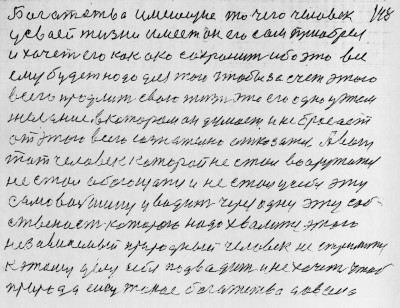 Богатства имеющие то чего человек 148
у своей жизни имеет он его сам приобрел
и хочет его как око сохранить ибо это все
ему будет надо для того чтобы за счет этого
всего продлить свою жизнь это его одно у нем
желание в котором он думает и не бросает
от этого всего сознательно отказать. А вот
тот человек которой не стал вооружить
не стал обогощать и не стал у себя эту
самоващину уводит через одну эту соб-
ственность которою надо хвалить этого
независимый природный человек не стремить
к этому делу себя подводит и не хочет чтоб
природа ему такое богатство довела